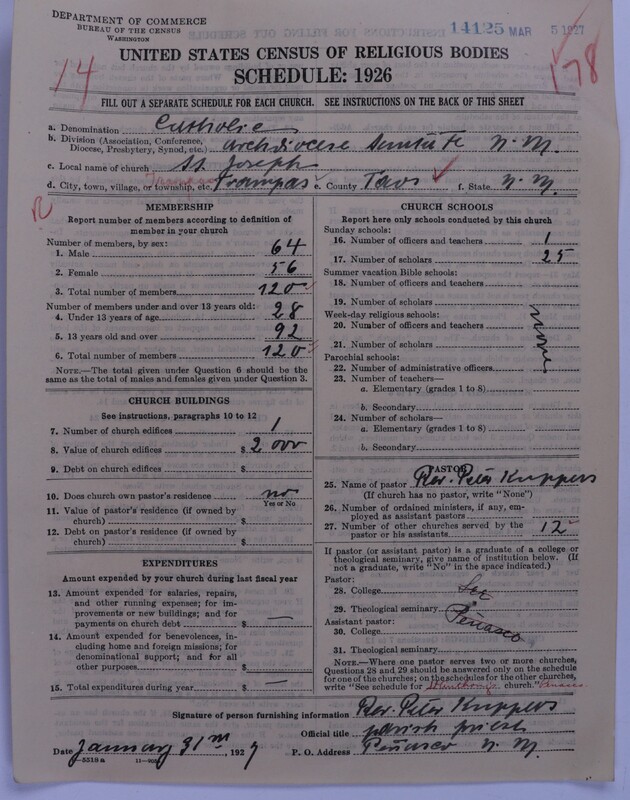 DEPARTMENT OF COMMERCE
BUREAU OF THE CENSUS
WASHINGTON
14125 MAR 5 1927
UNITED STATES CENSUS OF RELIGIOUS BODIES
SCHEDULE: 1926
14
178
FILL OUT A SEPARATE SCHEDULE FOR EACH CHURCH. SEE INSTRUCTIONS ON THE BACK OF THIS SHEET
a. Denomination Catholic
b. Division (Association, Conference, Diocese, Presbytery, Synod, etc.) Archdiocese Santa Fe N. M.
c. Local name of church St. Joseph
d. City, town, village, or township, etc. Trampas e. County Taos f. State N. M.
MEMBERSHIP
Report number of members according to definition of
member in your church
Number of members, by sex:
1. Male 64
2. Female 56
3. Total number of members 120
Number of members under and over 13 years old:
4. Under 13 years of age 28
5. 13 years old and over 92
6. Total number of members 120
NOTE.—The total given under Question 6 should be
the same as the total of males and females given under Question 3.
CHURCH BUILDINGS
See instructions, paragraphs 10 to 12
7. Number of church edifices 1
8. Value of church edifices $ 2000
9. Debt on church edifices $
10. Does church own pastor's residence no
Yes or No
11. Value of pastor's residence (if owned by
church) $
12. Debt on pastor's residence (if owned by
church) $
EXPENDITURES
Amount expended by your church during last fiscal year
13. Amount expended for salaries, repairs,
and other running expenses; for im-
provements or new buildings; and for
payments on church debt $ —
14. Amount expended for benevolences, in-
cluding home and foreign missions; for
denominational support; and for all
other purposes $
15. Total expenditures during year $ —
CHURCH SCHOOLS
Report here only schools conducted by this church
Sunday schools:
16. Number of officers and teachers 1
17. Number of scholars 25
Summer vacation Bible schools:
18. Number of officers and teachers
19. Number of scholars
Week-day religious schools:
20. Number of officers and teachers
21. Number of scholars
none
Parochial schools:
22. Number of administrative officers
23. Number of teachers—
a. Elementary (grades 1 to 8)
b. Secondary
24. Number of scholars—
a. Elementary (grades 1 to 8)
b. Secondary
PASTOR
25. Name of pastor Rev. Peter Kuppers
(If church has no pastor, write "None")
26. Number of ordained ministers, if any, em-
ployed as assistant pastors
27. Number of other churches served by the
pastor or his assistants 12
If pastor (or assistant pastor) is a graduate of a college or
theological seminary, give name of institution below. (If
not a graduate, write "No" in the space indicated.)
Pastor:
28. College See
29. Theological seminary Peñasco
Assistant pastor:
30. College
31. Theological seminary
NOTE.—Where one pastor serves two or more churches,
Questions 28 and 29 should be answered only on the schedule
for one of the churches; on the schedules for the other churches,
write "See schedule for St Anthony church." Penasco
Signature of person furnishing information Rev. Peter Kuppers
Official title parish priest
Date January 31 1927 P. O. Address Peñasco N. M.
5518a